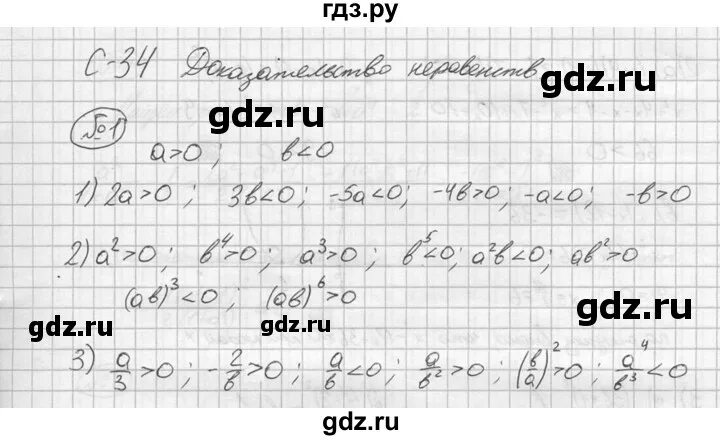 гдз.ру
С-34 Доказательство неравенств
gdz.ru
gdz.ru
№1
a>0 ; b<0
gdz.ru
1) 2a>0 ; 3b<0; -5a<0; -4b>0; -a<0; -b>0
gdz.ru
gdz.ru
2) a²>0 ; b⁴>0 ; a³>0 ; b⁵<0; a²b<0; ab²>0
(ab)³<0 ; (ab)⁶>0
gdz.ru
gdz.ru
gdz.ru
3) a/3>0 ; -2/b>0 ; a/b<0 ; a/b²>0 ; (b/a)²>0 ; a⁴/b³<0
gdz.ru
gdz.ru